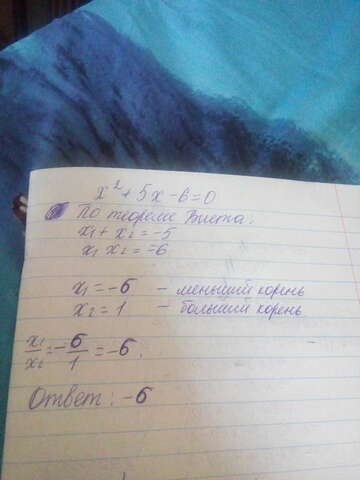 x² + 5x - 6 = 0
По теореме Виета:
x₁ + x₂ = -5
x₁ x₂ = -6
x₁ = -6 - меньший корень
x₂ = 1 - больший корень
x₁/x₂ = -6/1 = -6.
Ответ: -6